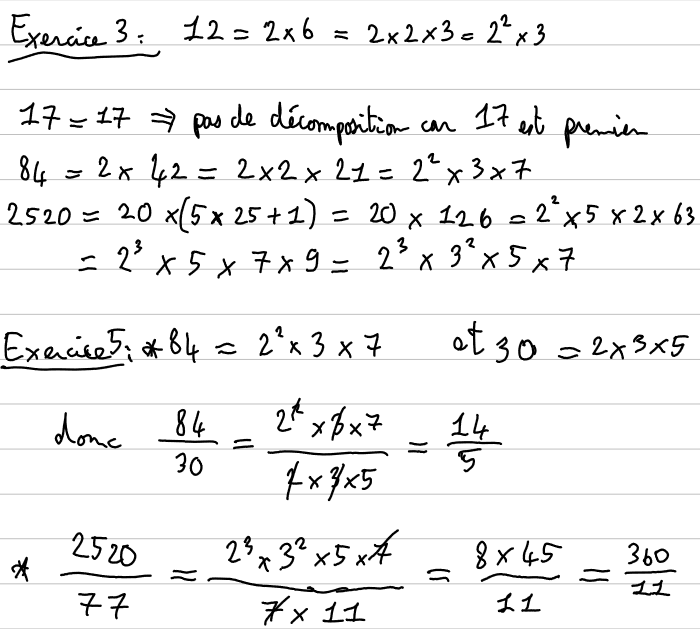 Exercice 3: 12 = 2 × 6 = 2 × 2 × 3 = 2² × 3
17 = 17 ⇒ pas de décomposition car 17 est premier
84 = 2 × 42 = 2 × 2 × 21 = 2² × 3 × 7
2520 = 20 × (5 × 25 + 1) = 20 × 126 = 2² × 5 × 2 × 63
= 2³ × 5 × 7 × 9 = 2³ × 3² × 5 × 7
Exercice 5: * 84 = 2² × 3 × 7 et 30 = 2 × 3 × 5
donc 84/30 = (2² × 3 × 7)/(2 × 3 × 5) = 14/5
* 2520/77 = (2³ × 3² × 5 × 7)/(7 × 11) = (8 × 45)/11 = 360/11